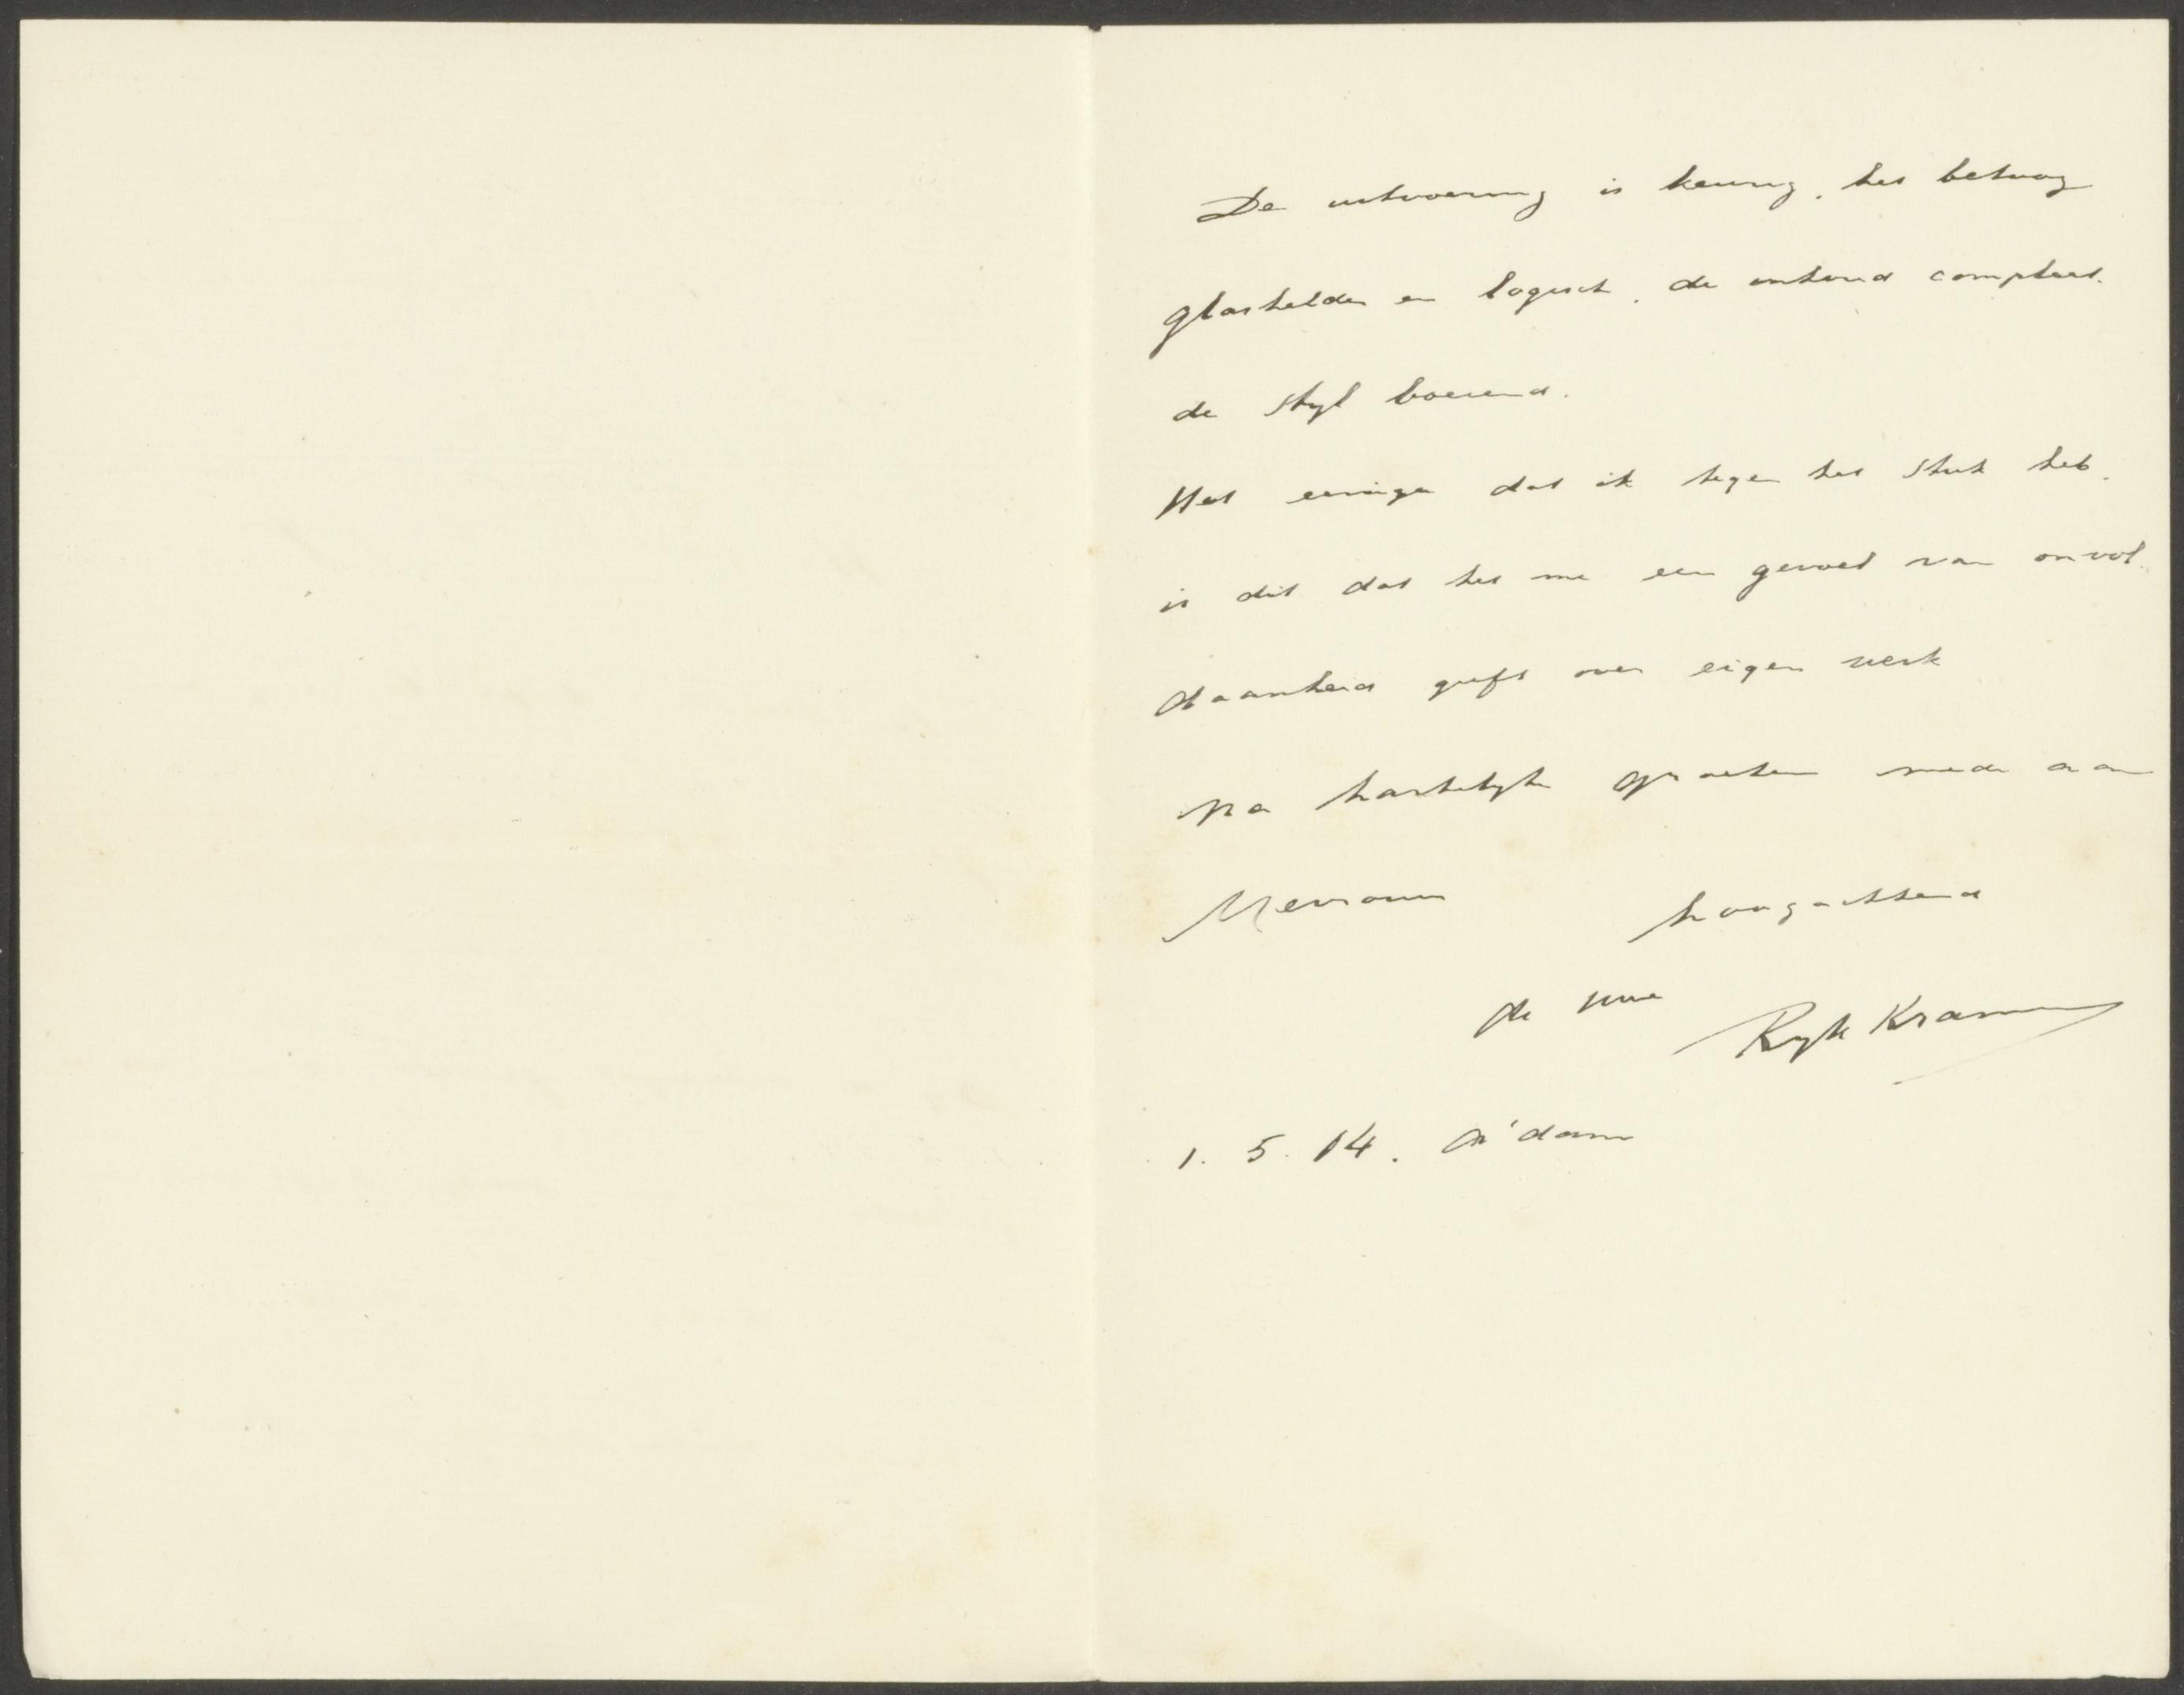 De uitvoering is keurig, het betoog
glashelder en logisch, de inhoud compleet.
de styl boeiend.
Het eenige dat ik tegen het stuk heb,
is dit dat het me een gevoel van onvol-
daanheid geeft over eigen werk
Na hartelyke groeten mede aan
Mevrouw hoogachtend
de uwe Ryk Kramer
1. 5. 14. A'dam